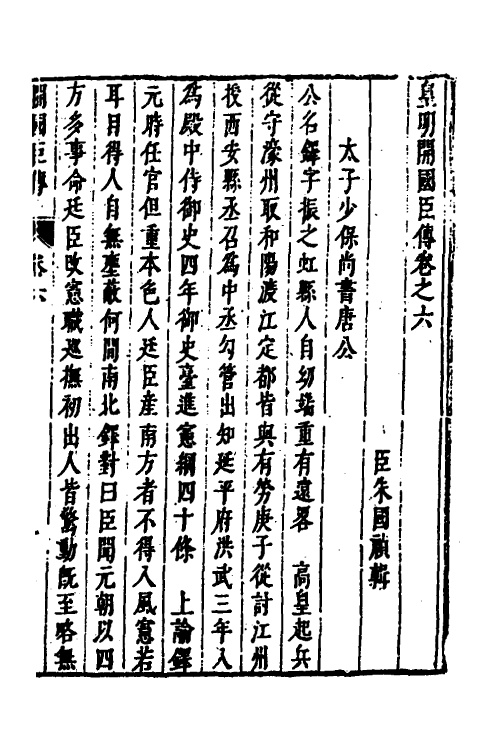 皇明開國臣傳卷之六
臣朱國禎輯
太子少保尚書唐公
公名鐸字振之虹縣人自幼端重有遠畧　高皇起兵
從守濠州取和陽渡江定都皆與有勞庚子從討江州
授西安縣丞召爲中丞勾管出知延平府洪武三年入
爲殿中侍御史四年御史臺進憲綱四十條　上諭鐸
元時任官但重本色人廷臣産南方者不得入風憲若
耳目得人自無壅蔽何間南北鐸對曰臣聞元朝以四
方多事命廷臣改憲職巡撫初出人皆驚動旣至略無
開國臣傳　卷六